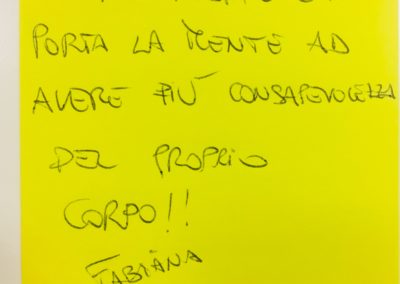 PORTA LA MENTE AD
AVERE PIÙ CONSAPEVOLEZZA
DEL PROPRIO
CORPO!!
FABIANA